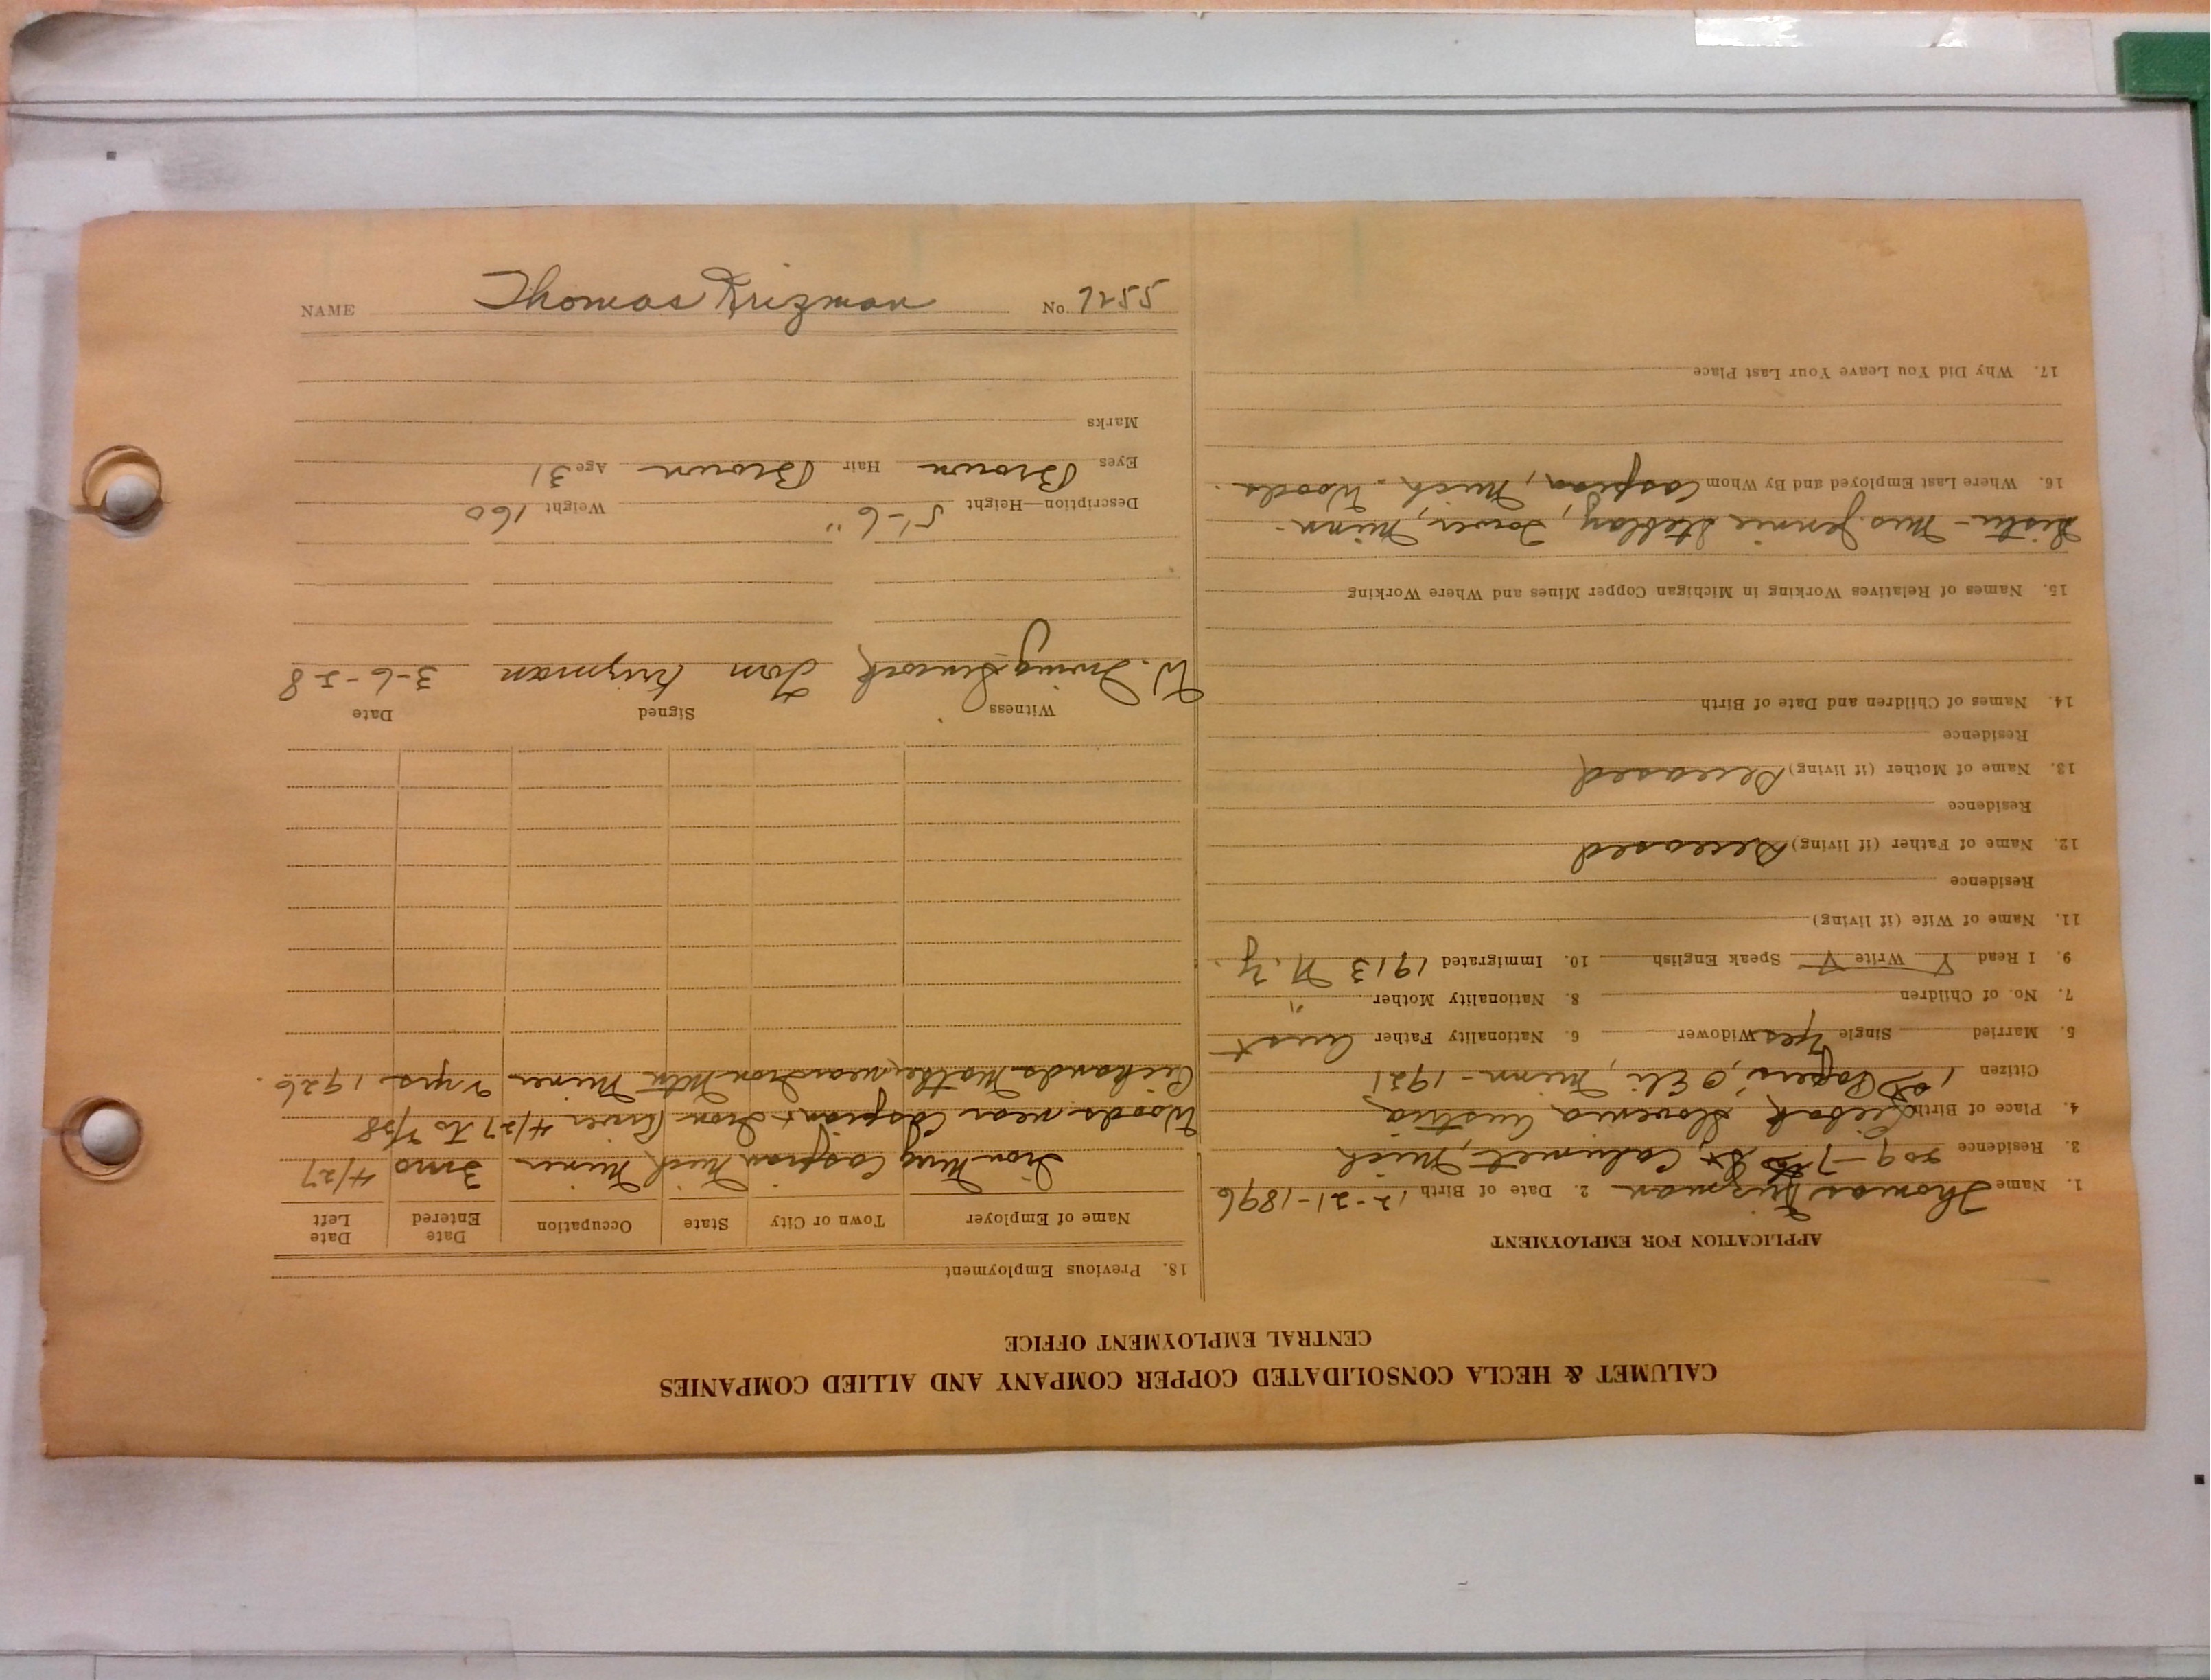 CALUMET & HECLA CONSOLIDATED COPPER COMPANY AND ALLIED COMPANIES
CENTRAL EMPLOYMENT OFFICE
APPLICATION FOR EMPLOYMENT
1. Name Thomas Krizman 2. Date of Birth 12-21-1896
3. Residence 209-7th St Calumet, Mich
4. Place of Birth Slovenia Austria
Citizen 1st Papers, Eli, Minn-1921
5. Married Single Yes Widower 6. Nationality Father Aust
7. No. of Children 8. Nationality Mother "
9. I Read Write Speak English 10. Immigrated 1913 N.Y.
11. Name of Wife (if living)
Residence
12. Name of Father (if living) Deceased
Residence
13. Name of Mother (if living) Deceased
Residence
14. Names of Children and Date of Birth
15. Names of Relatives Working in Michigan Copper Mines and Where Working
Sister - Mrs Jennie Steblay, Tower, Minn.
16. Where Last Employed and By Whom Caspian, Mich. Woods.
17. Why Did You Leave Your Last Place
18. Previous Employment
Name of Employer Town or City State Occupation Date Entered Date Left
Iron Mng Caspian Mich Miner 3mo 4/27
Woods near Caspian + Iron River 4/27 to 2/28
near Iron Mtn Miner yrs 1926.
Witness Signed Date
W. Irving Krizman 3-6-28
Description—Height 5'-6" Weight 160
Eyes Brown Hair Brown Age 31
Marks
NAME Thomas Krizman No. 7255